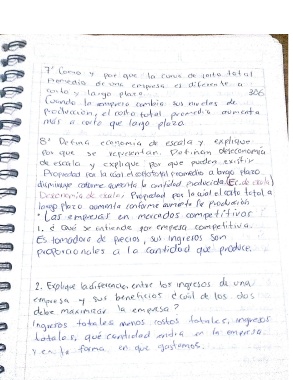 7° Como y por que la curva de costo total
promedio de una empresa es diferente a
corto y largo plazo. 306
Cuando la empresa cambia sus niveles de
producción, el costo total promedio aumenta
más a corto que largo plazo
8° Defina economía de escala y explique
por que se representan. Definan deseconomía
de escala y explique por que pueden existir
Propiedad por la cual el costo total promedio a largo plazo
disminuye conforme aumenta la cantidad producida (Ec. de escala)
Deseconomía de escala: Propiedad por la cual el costo total a
largo plazo aumenta conforme aumenta la producción
• Las empresas en mercados competitivos
1. ¿ Qué se entiende por empresa competitiva.
Es tomadora de precios, sus ingresos son
proporcionales a la cantidad que produce.
2. Explique la diferencia entre los ingresos de una
empresa y sus beneficios ¿ cuál de los dos
debe maximizar la empresa?
Ingresos totales menos costos totales, ingresos
totales, qué cantidad entra en la empresa
y en la forma en que gastamos.